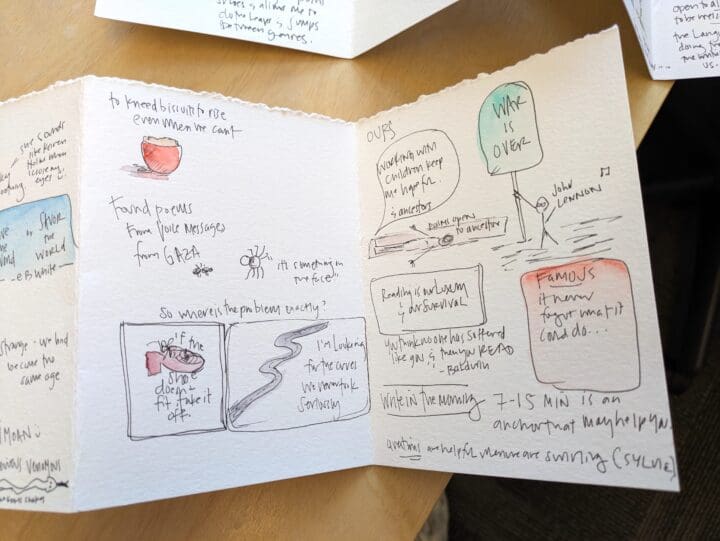 shoes & allow me to
leap & jumps
between genres.
open to a
to be
the Lang
doing t
the
us.
she sounds
like Karen
eyes
or SAVOR
the
WORLD
- eB White
Strange - we had
become the
same age
VENOMOUS
to kneed biscuits to rise
even when we can't
Found poems
from Voice Messages
from GAZA
it's something in
the face"
So where is the problem exactly?
if the
shoe
doesn't
fit, take it
off.
I'm Looking
for the curves
We never took
seriously
OURS
Working with
children keep
me hopeful
& ancestors
palms open
to ancestor
WAR
IS
OVER
JOHN
LENNON
Reading is our Luxury
& our Survival
U think no one has suffered
like you & then you READ
- Baldwin
FAMOUS
it never
forgot what it
could do...
Write in the morning
7-15 MIN is an
anchor that may help you.
questions are helpful when we are swirling (SYLVIE)